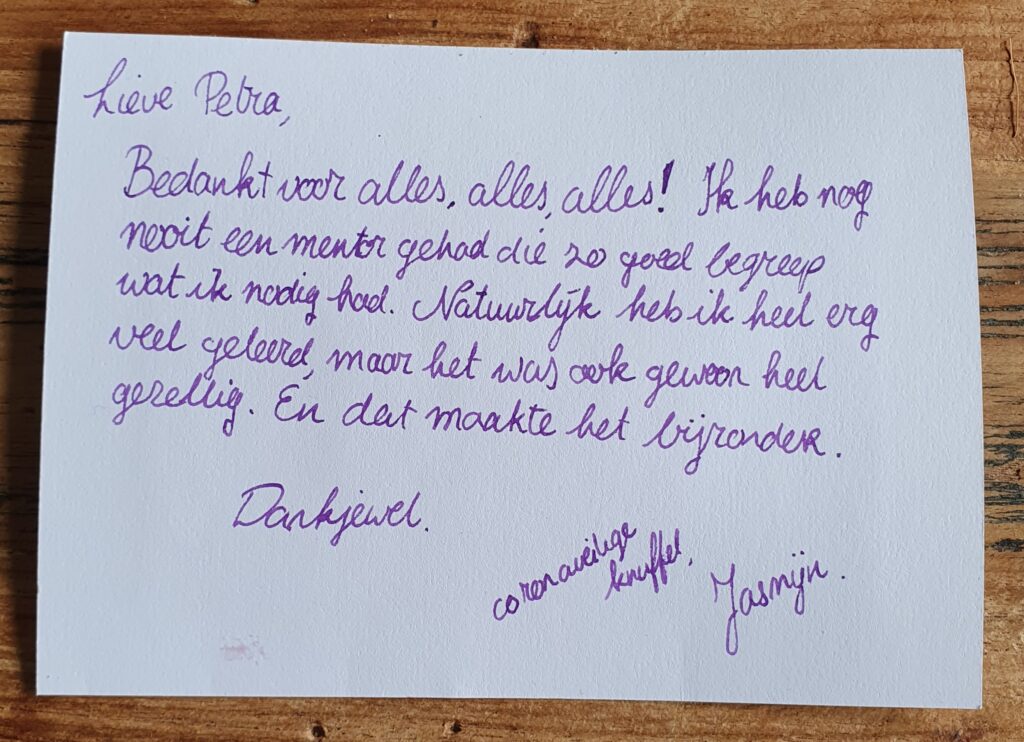 Lieve Petra,
Bedankt voor alles, alles, alles! Ik heb nog
nooit een mentor gehad die zo goed begreep
wat ik nodig had. Natuurlijk heb ik heel erg
veel geleerd, maar het was ook gewoon heel
gezellig. En dat maakte het bijzonder.
Dankjewel.
coronaveilige
knuffel,
Jasmijn.